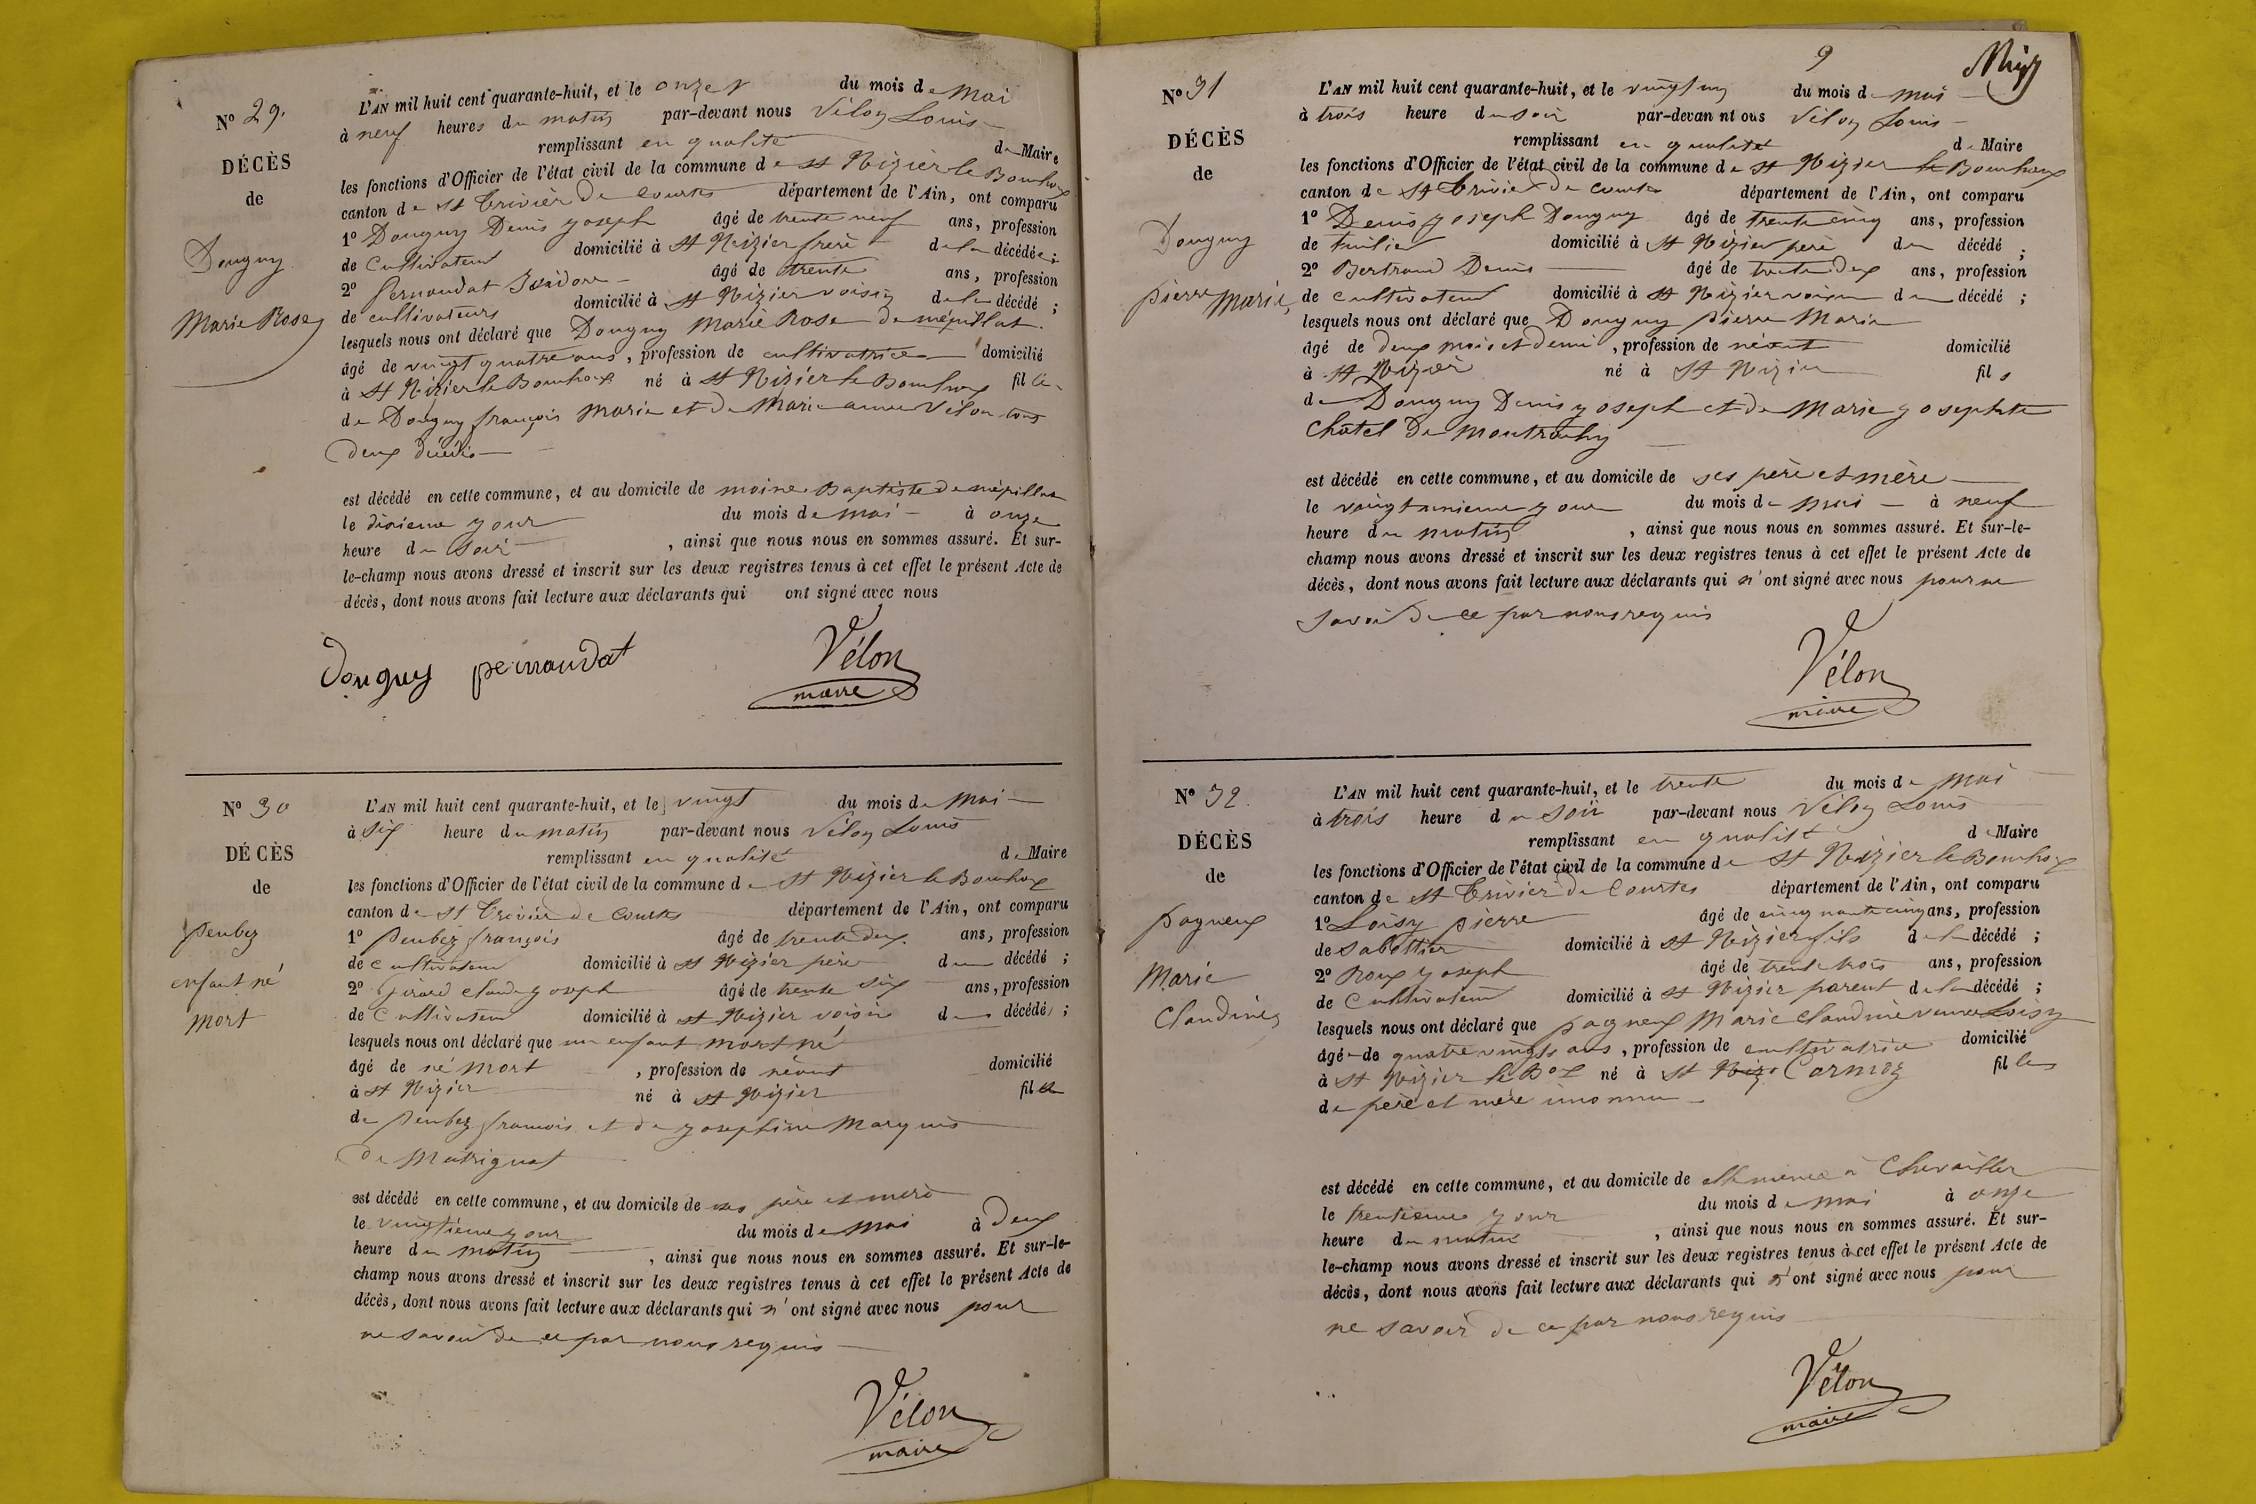 N° 29.
DÉCÈS
de
Douguy
Marie Rose
L'AN mil huit cent quarante-huit, et le onze du mois de Mai
à neuf heures du matin par-devant nous Vélon Louis
remplissant en qualité de Maire
les fonctions d'Officier de l'état civil de la commune de St Nizier le Bouhoux
canton de St Trivier de Courtes département de l'Ain, ont comparu
1° Douguy Denis yoseph âgé de trente neuf ans, profession
de Cultivateur domicilié à St Nizier frère de la décédée;
2° pernoudat Isidore âgé de trente ans, profession
de cultivateurs domicilié à St Nizier voisin de la décédé ;
lesquels nous ont déclaré que Douguy Marie Rose de mépillat
âgé de vingt quatre ans, profession de cultivatrice domicilié
à St Nizier le Bouhoux né à St Nizier le Bouhoux fille
de Douguy françois Marie et de Marie anne Vélon tous
deux décédés
est décédé en cette commune, et au domicile de moine Baptiste de mépillat
le dixieme your du mois de mai à onze
heure du soir , ainsi que nous nous en sommes assuré. Et sur-
le-champ nous avons dressé et inscrit sur les deux registres tenus à cet effet le présent Acte de
décès, dont nous avons fait lecture aux déclarants qui ont signé avec nous
Douguy pernoudat Vélon
maire
N° 30
DÉCÈS
de
peubez
enfant né
mort
L'AN mil huit cent quarante-huit, et le vingt du mois de Mai
à six heure du matin par-devant nous Vélon Louis
remplissant en qualité de Maire
les fonctions d'Officier de l'état civil de la commune de St Nizier le Bouhoux
canton de St Trivier de Courtes département de l'Ain, ont comparu
1° peubez françois âgé de trente deux ans, profession
de cultivateur domicilié à St Nizier père du décédé ;
2° girard claude yoseph âgé de trente six ans, profession
de Cultivateur domicilié à St Nizier voisin du décédé ;
lesquels nous ont déclaré que un enfant mort né
âgé de né mort , profession de néant domicilié
à St Nizier né à St Nizier fil
de peubez francois et de yosephine Marquis
de Matrignat
est décédé en cette commune, et au domicile de ses père et mère
le vingtième your du mois de mai à Deux
heure du matin , ainsi que nous nous en sommes assuré. Et sur-le-
champ nous avons dressé et inscrit sur les deux registres tenus à cet effet le présent Acte de
décès, dont nous avons fait lecture aux déclarants qui n'ont signé avec nous pour
ne savoir de ce par nous requis
Vélon
maire
9
N° 31
DÉCÈS
de
Douguy
pierre Marie
L'AN mil huit cent quarante-huit, et le vingt un du mois de mai
à trois heure du soir par-devan nt ous Vélon Louis
remplissant en qualité de Maire
les fonctions d'Officier de l'état civil de la commune de St Nizier le Bouhoux
canton de St Trivier de Courtes département de l'Ain, ont comparu
1° Denis yoseph Douguy âgé de trente cinq ans, profession
de tuilier domicilié à St Nizier père du décédé ;
2° Bertrand Denis âgé de trente deux ans, profession
de cultivateur domicilié à St Nizier voisin du décédé ;
lesquels nous ont déclaré que Douguy pierre Marie
âgé de deux mois et demi , profession de néant domicilié
à St Nizier né à St Nizier fils
de Douguy Denis yoseph et de Marie yosephte
Châtel de
est décédé en cette commune, et au domicile de ses père et mère
le vingt unieme your du mois de mai à neuf
heure du matin , ainsi que nous nous en sommes assuré. Et sur-le-
champ nous avons dressé et inscrit sur les deux registres tenus à cet effet le présent Acte de
décès, dont nous avons fait lecture aux déclarants qui n'ont signé avec nous pour ne
savoir de ce par nous requis
Vélon
maire
N° 32.
DÉCÈS
de
pagneux
Marie
Claudine
L'AN mil huit cent quarante-huit, et le trente du mois de Mai
à trois heure du soir par-devant nous Vélon Louis
remplissant en qualité de Maire
les fonctions d'Officier de l'état civil de la commune de St Nizier le Bouhoux
canton de St Trivier de Courtes département de l'Ain, ont comparu
1° Loisy pierre âgé de cinquante cinq ans, profession
de sabottier domicilié à St Nizier fils de la décédé ;
2° Roux yoseph âgé de trente trois ans, profession
de Cultivateur domicilié à St Nizier parent de la décédé ;
lesquels nous ont déclaré que pagneux Marie Claudine veuve Loisy
âgé de quatre vingts ans , profession de cultivatrice domicilié
à St Nizier le Boz né à St Cormoz fille
de père et mère inconnu
est décédé en cette commune, et au domicile de elle même à Chevailler
le trentieme your du mois de mai à onze
heure du matin , ainsi que nous nous en sommes assuré. Et sur-
le-champ nous avons dressé et inscrit sur les deux registres tenus à cet effet le présent Acte de
décès, dont nous avons fait lecture aux déclarants qui n'ont signé avec nous pour
ne savoir de ce par nous requis
Vélon
maire